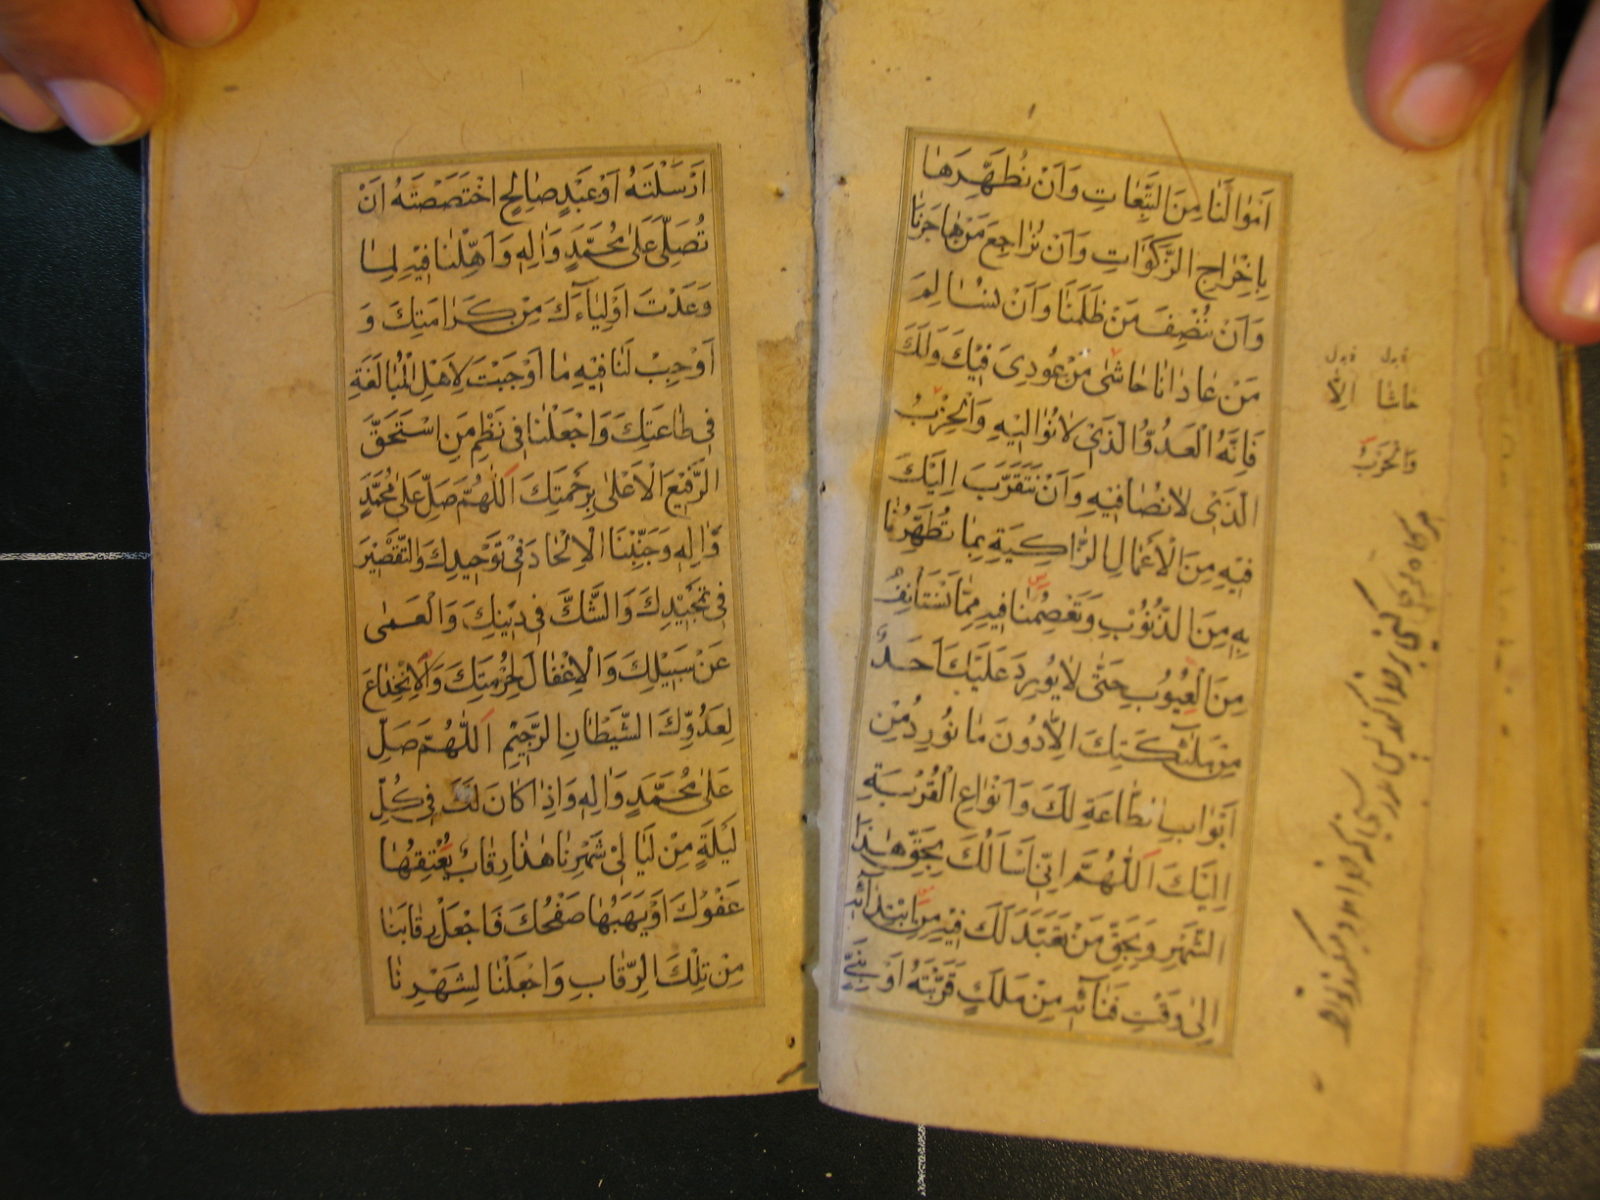 اَمْوٰالَنٰا مِنَ التَّبِعٰاتِ وَاَنْ نُطَهِّرَهٰا
بِاِخْرٰاجِ الزَّكَوٰاتِ وَاَنْ نُرٰاجِعَ مَنْ هٰاجَرَنٰا
وَاَنْ نُنْصِفَ مَنْ ظَلَمَنٰا وَاَنْ نُسٰالِمَ
مَنْ عٰادٰانٰا حٰاشٰى مَنْ عُودِىَ فِيْكَ وَلَكَ
فَاِنَّهُ الْعَدُوُّ الَّذِىْ لاٰ نُوٰالِيْهِ وَالْحِزْبُ
الَّذِىْ لاٰ نُصٰافِيْهِ وَاَنْ نَتَقَرَّبَ اِلَيْكَ
فِيْهِ مِنَ الْاَعْمٰالِ الزّٰاكِيَةِ بِمٰا تُطَهِّرُنٰا
بِهِ مِنَ الذُّنُوْبِ وَتَعْصِمُنٰا فِيْهِ مِمّٰا نَسْتَأنِفُ
مِنَ الْعُيُوْبِ حَتّٰى لاٰ يُوْرِدَ عَلَيْكَ اَحَدٌ
مِنْ مَلٰئِكَتِكَ اِلاّٰ دُونَ مٰا نُوْرِدُ مِنْ
اَبْوٰابِ الطّٰاعَةِ لَكَ وَاَنْوٰاعِ الْقُرْبَةِ
اِلَيْكَ اَللّٰهُمَّ اِنّٖى اَسْاَلُكَ بِحَقِّ هٰذَا
الشَّهْرِ وَبِحَقِّ مَنْ تَعَبَّدَ لَكَ فِيْهِ مِنِ ابْتِدٰائِهِ
اِلٰى وَقْتِ فَنٰائِهِ مِنْ مَلَكٍ قَرَّبْتَهُ اَوْ نَبِىٍّ
حاشا
الاّ
وَالْحَرْبُ
اَرْسَلْتَهُ اَوْ عَبْدٍ صٰالِحٍ اخْتَصَصْتَهُ اَنْ
تُصَلِّىَ عَلٰى مُحَمَّدٍ وَاٰلِهِ وَاَهِّلْنٰا فِيْهِ لِمٰا
وَعَدْتَ اَوْلِيٰاءَكَ مِنْ كَرٰامَتِكَ وَ
اَوْجِبْ لَنٰا فِيْهِ مٰا اَوْجَبْتَ لِاَهْلِ الْمُبٰالَغَةِ
فِى طٰاعَتِكَ وَاجْعَلْنٰا فِى نَظْمِ مَنِ اسْتَحَقَّ
الرَّفِيْعَ الْاَعْلٰى بِرَحْمَتِكَ اَللّٰهُمَّ صَلِّ عَلٰى مُحَمَّدٍ
وَاٰلِهِ وَجَنِّبْنَا الْاِلْحٰادَ فِىْ تَوْحِيْدِكَ وَالتَّقْصِيْرَ
فِى تَمْجِيْدِكَ وَالشَّكَّ فِى دِيْنِكَ وَالْعَمٰى
عَنْ سَبِيْلِكَ وَالْاِغْفٰالَ لِحُرْمَتِكَ وَالْاِنْخِدٰاعَ
لِعَدُوِّكَ الشَّيْطٰانِ الرَّجِيْمِ اَللّٰهُمَّ صَلِّ
عَلٰى مُحَمَّدٍ وَاٰلِهِ وَاِذٰا كٰانَ لَكَ فِى كُلِّ
لَيْلَةٍ مِنْ لَيٰالِىْ شَهْرِنٰا هٰذٰا رِقٰابٌ يُعْتِقُهٰا
عَفْوُكَ اَوْ يَهَبُهٰا صَفْحُكَ فَاجْعَلْ رِقٰابَنٰا
مِنْ تِلْكَ الرِّقٰابِ وَاجْعَلْنٰا لِشَهْرِنٰا